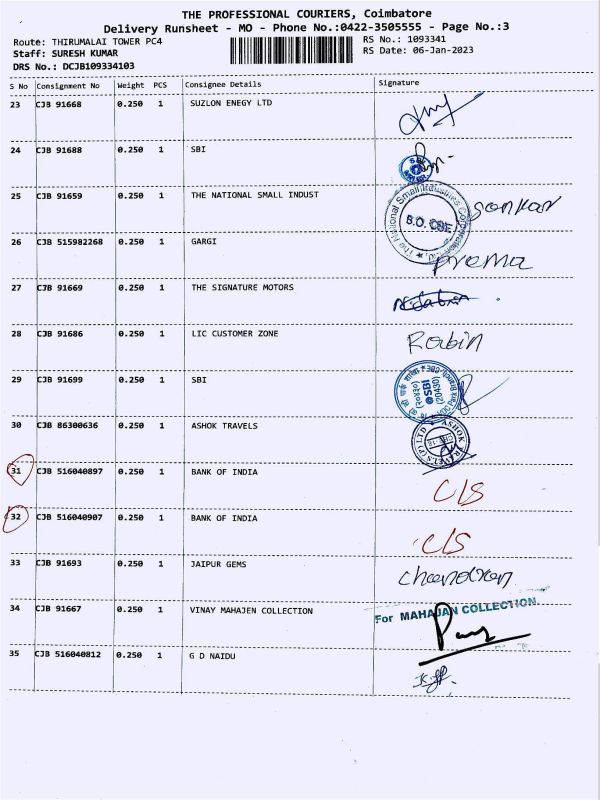 THE PROFESSIONAL COURIERS, Coimbatore
Delivery Runsheet - MO - Phone No.:0422-3505555 - Page No.:3
Route: THIRUMALAI TOWER PC4
RS No.: 1093341
Staff: SURESH KUMAR
RS Date: 06-Jan-2023
DRS No.: DCJB109334103
S No Consignment No Weight PCS Consignee Details Signature
23 CJB 91668 0.250 1 SUZLON ENEGY LTD
24 CJB 91688 0.250 1 SBI
25 CJB 91659 0.250 1 THE NATIONAL SMALL INDUST
The National Small Industries Corporation Ltd.
B.O. CBE
Sankar
26 CJB 515982268 0.250 1 GARGI
Prema
27 CJB 91669 0.250 1 THE SIGNATURE MOTORS
28 CJB 91686 0.250 1 LIC CUSTOMER ZONE
Robin
29 CJB 91699 0.250 1 SBI
SBI
30 CJB 86300636 0.250 1 ASHOK TRAVELS
ASHOK TRAVELS (P) LTD
31 CJB 516040897 0.250 1 BANK OF INDIA
C/S
32 CJB 516040907 0.250 1 BANK OF INDIA
C/S
33 CJB 91693 0.250 1 JAIPUR GEMS
Chandran
34 CJB 91667 0.250 1 VINAY MAHAJEN COLLECTION
For MAHAJAN COLLECTION
35 CJB 516040812 0.250 1 G D NAIDU